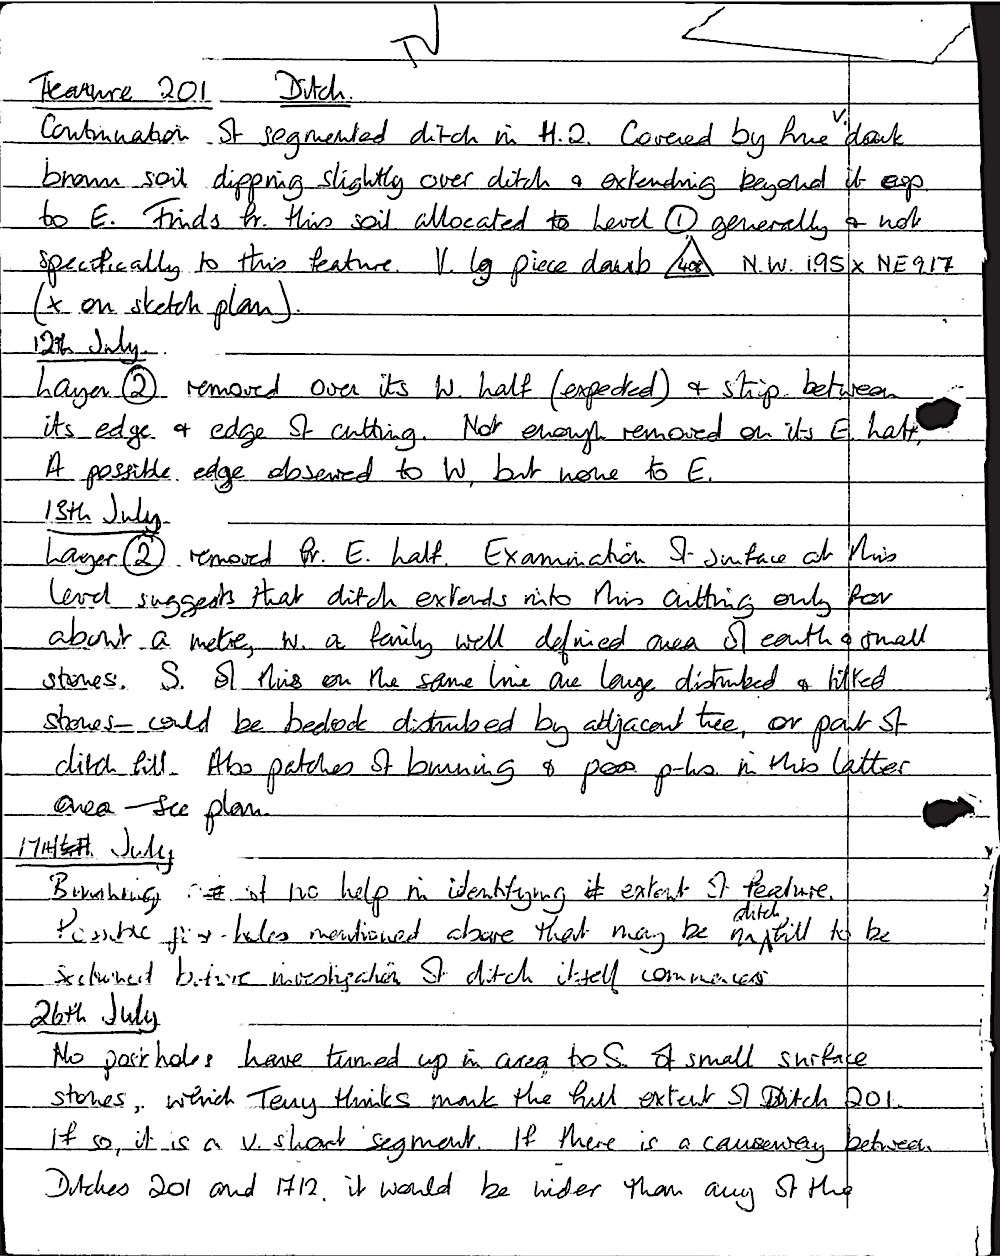 IV
Feature 201 Ditch.
Continuation of segmented ditch in H.2. Covered by fine v. dark
brown soil dipping slightly over ditch & extending beyond it esp.
to E. Finds fr. this soil allocated to Level ① generally & not
specifically to this feature. V. lg piece daub 408 N.W. 1.95 x NE 9.17
(x on sketch plan).
12th July.
Layer ② removed over its W. half (expected) & strip between
its edge & edge of cutting. Not enough removed on its E. half.
A possible edge observed to W, but none to E.
13th July.
Layer ② removed fr. E. half. Examination of surface at this
level suggests that ditch extends into this cutting only for
about a metre, w. a fairly well defined area of earth & small
stones. S. of this on the same line are large disturbed & tilted
stones – could be bedrock disturbed by adjacent tree, or part of
ditch fill. Also patches of burning & poss p-hs. in this latter
area – see plan.
17th July
Brushing of no help in identifying extent of feature.
Possible post-holes mentioned above that may be in ditch fill to be
sectioned before investigation of ditch itself commences
26th July
No postholes have turned up in area to S. of small surface
stones, which Terry thinks mark the full extent of Ditch 201.
If so, it is a v. short segment. If there is a causeway between
Ditches 201 and 1712, it would be wider than any of the